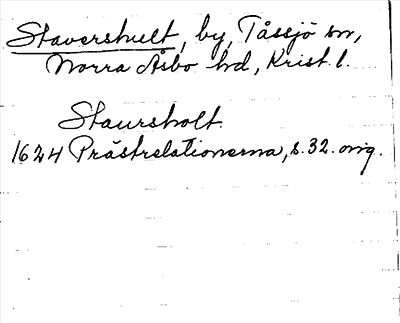 Stavershult, by, Tåssjö sn,
Norra Åsbo hd, Krist. l.
Staursholt.
1624 Prästrelationerna, s. 32. orig.